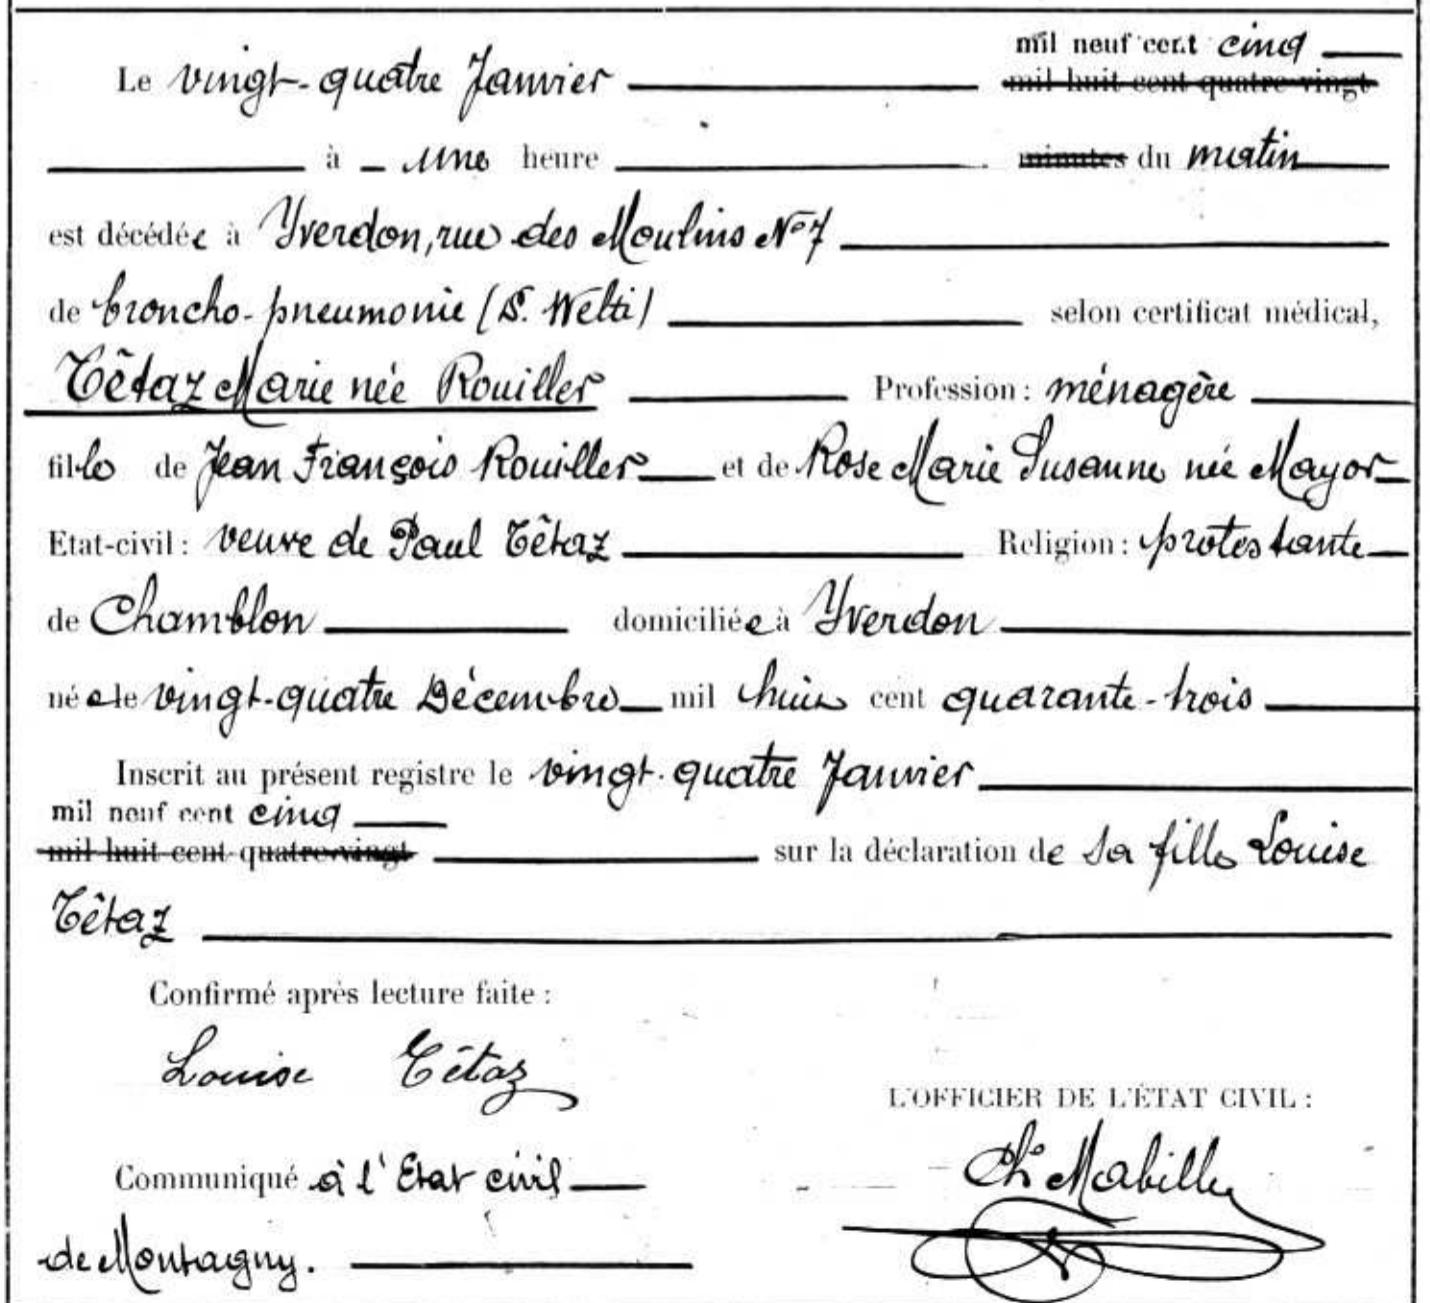 mil neuf cent cinq
Le vingt-quatre Janvier mil huit cent quatre-vingt
à une heure minutes du matin
est décédée à Yverdon, rue des Moulins No 7
de broncho-pneumonie (D. Welti) selon certificat médical,
Têtaz Marie née Rouiller Profession : ménagère
fille de Jean François Rouiller et de Rose Marie Susanne née Mayor
Etat-civil : veuve de Paul Têtaz Religion : protestante
de Chamblon domiciliée à Yverdon
née le vingt-quatre Décembre mil huit cent quarante-trois
Inscrit au présent registre le vingt-quatre Janvier
mil neuf cent cinq
mil huit cent quatre-vingt sur la déclaration de sa fille Louise
Têtaz
Confirmé après lecture faite :
Louise Têtaz
L'OFFICIER DE L'ÉTAT CIVIL :
Communiqué à l'Etat civil Ch Mabille
de Montagny.